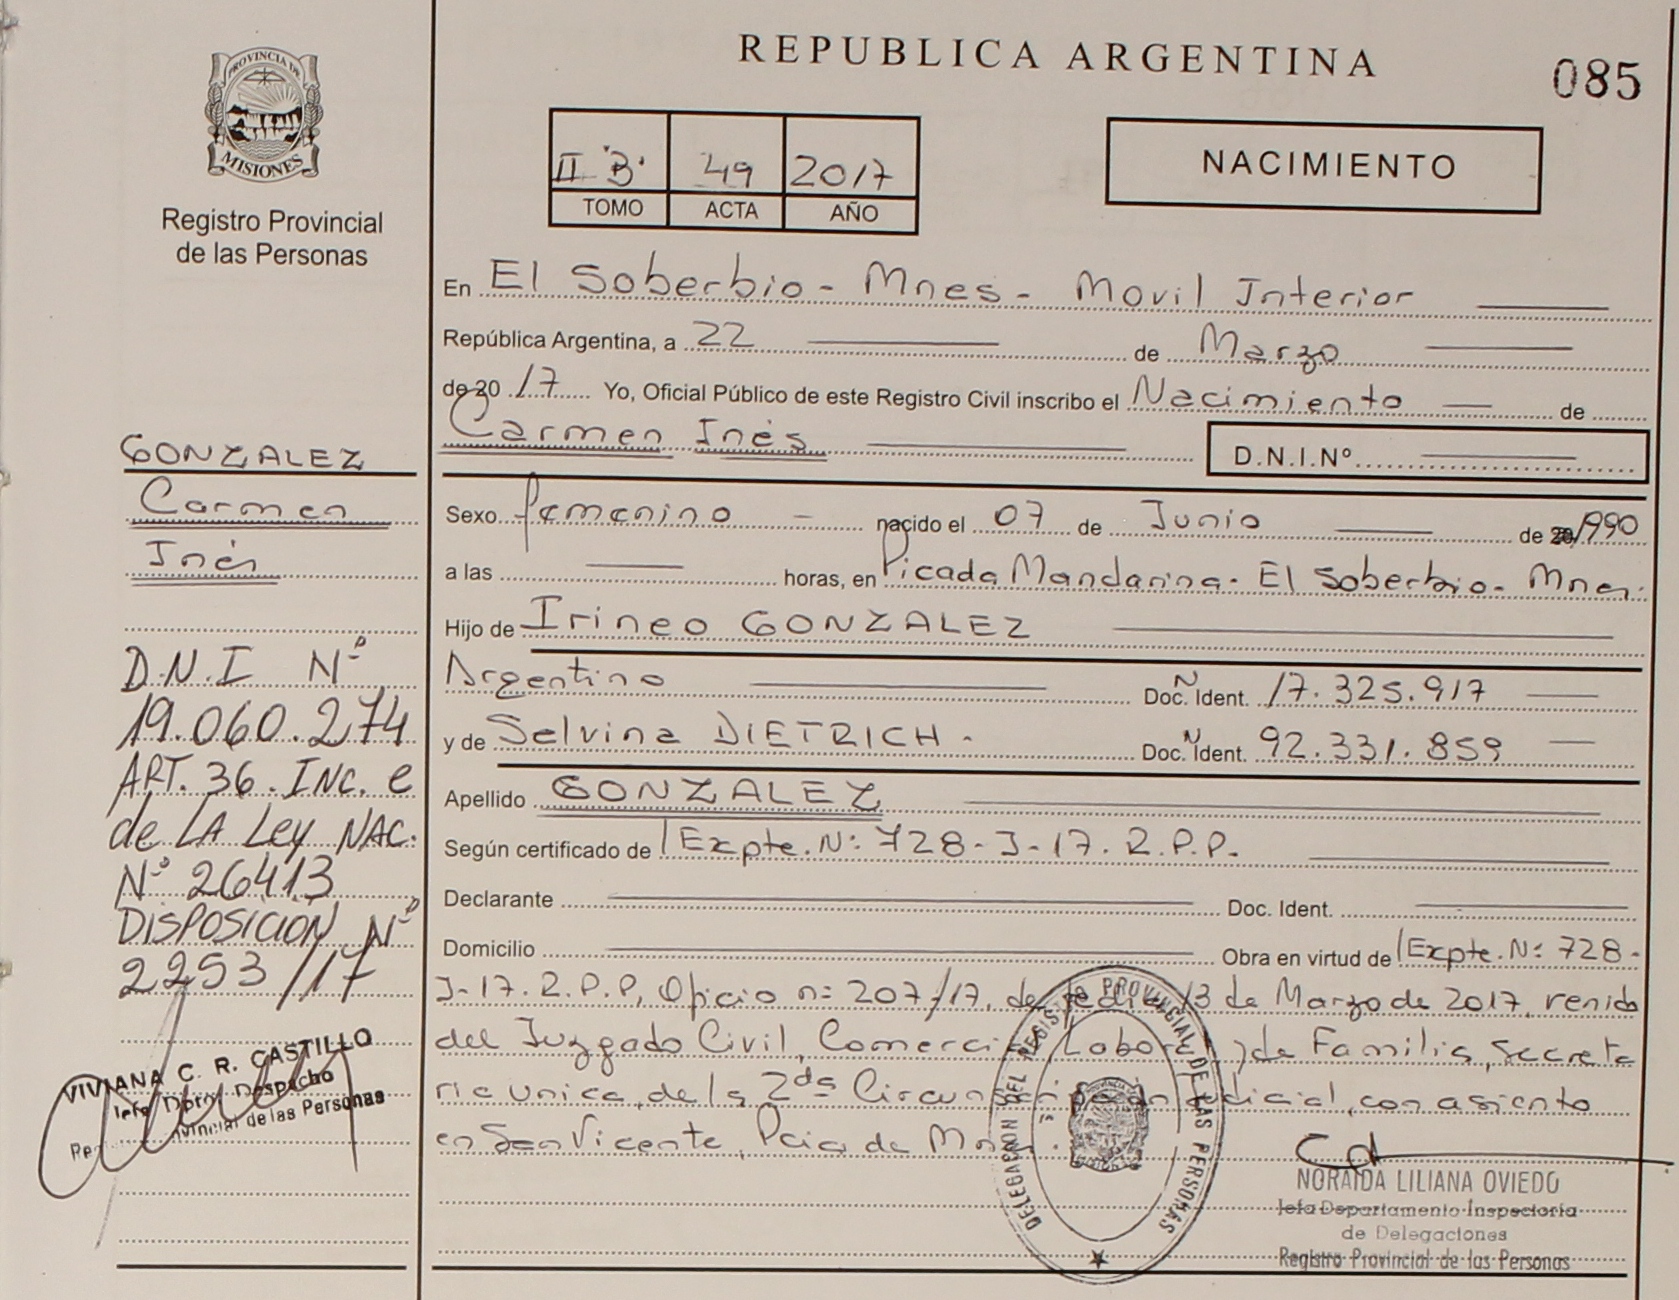 REPUBLICA ARGENTINA
085
PROVINCIA DE
MISIONES
Registro Provincial
de las Personas
II "B" 49 2017
TOMO ACTA AÑO
NACIMIENTO
En El Soberbio - Mnes - Movil Interior
República Argentina, a 22 de Marzo
de 20 17 Yo, Oficial Público de este Registro Civil inscribo el Nacimiento de
Carmen Inés
D.N.I.Nº
Sexo femenino nacido el 07 de Junio de 1990
a las horas, en Picada Mandarina - El Soberbio - Mnes.
Hijo de Irineo GONZALEZ
Argentino Doc. Ident. 17.325.917
y de Selvina DIETRICH - Doc. Ident. 92.331.859
Apellido GONZALEZ
Según certificado de Expte. Nº: 728-J-17. R.P.P.
Declarante Doc. Ident.
Domicilio Obra en virtud de Expte. Nº: 728-
J-17. R.P.P, Oficio nº 207/17, de fecha 13 de Marzo de 2017, venido
del Juzgado Civil, Comercial, Laboral y de Familia, Secreta
ria unica, de la 2da Circunscripcion Judicial, con asiento
en San Vicente, Pcia de Mnes.
GONZALEZ
Carmen
Inés
D.N.I Nº
19.060.274
ART. 36. INC. e
de LA Ley NAC.
Nº 26413
DISPOSICION Nº
2253/17
VIVIANA C. R. CASTILLO
Jefa Dpto. Despacho
Registro Provincial de las Personas
DELEGACION DEL REGISTRO PROVINCIAL DE LAS PERSONAS
NORAIDA LILIANA OVIEDO
Jefa Departamento Inspectoria
de Delegaciones
Registro Provincial de las Personas